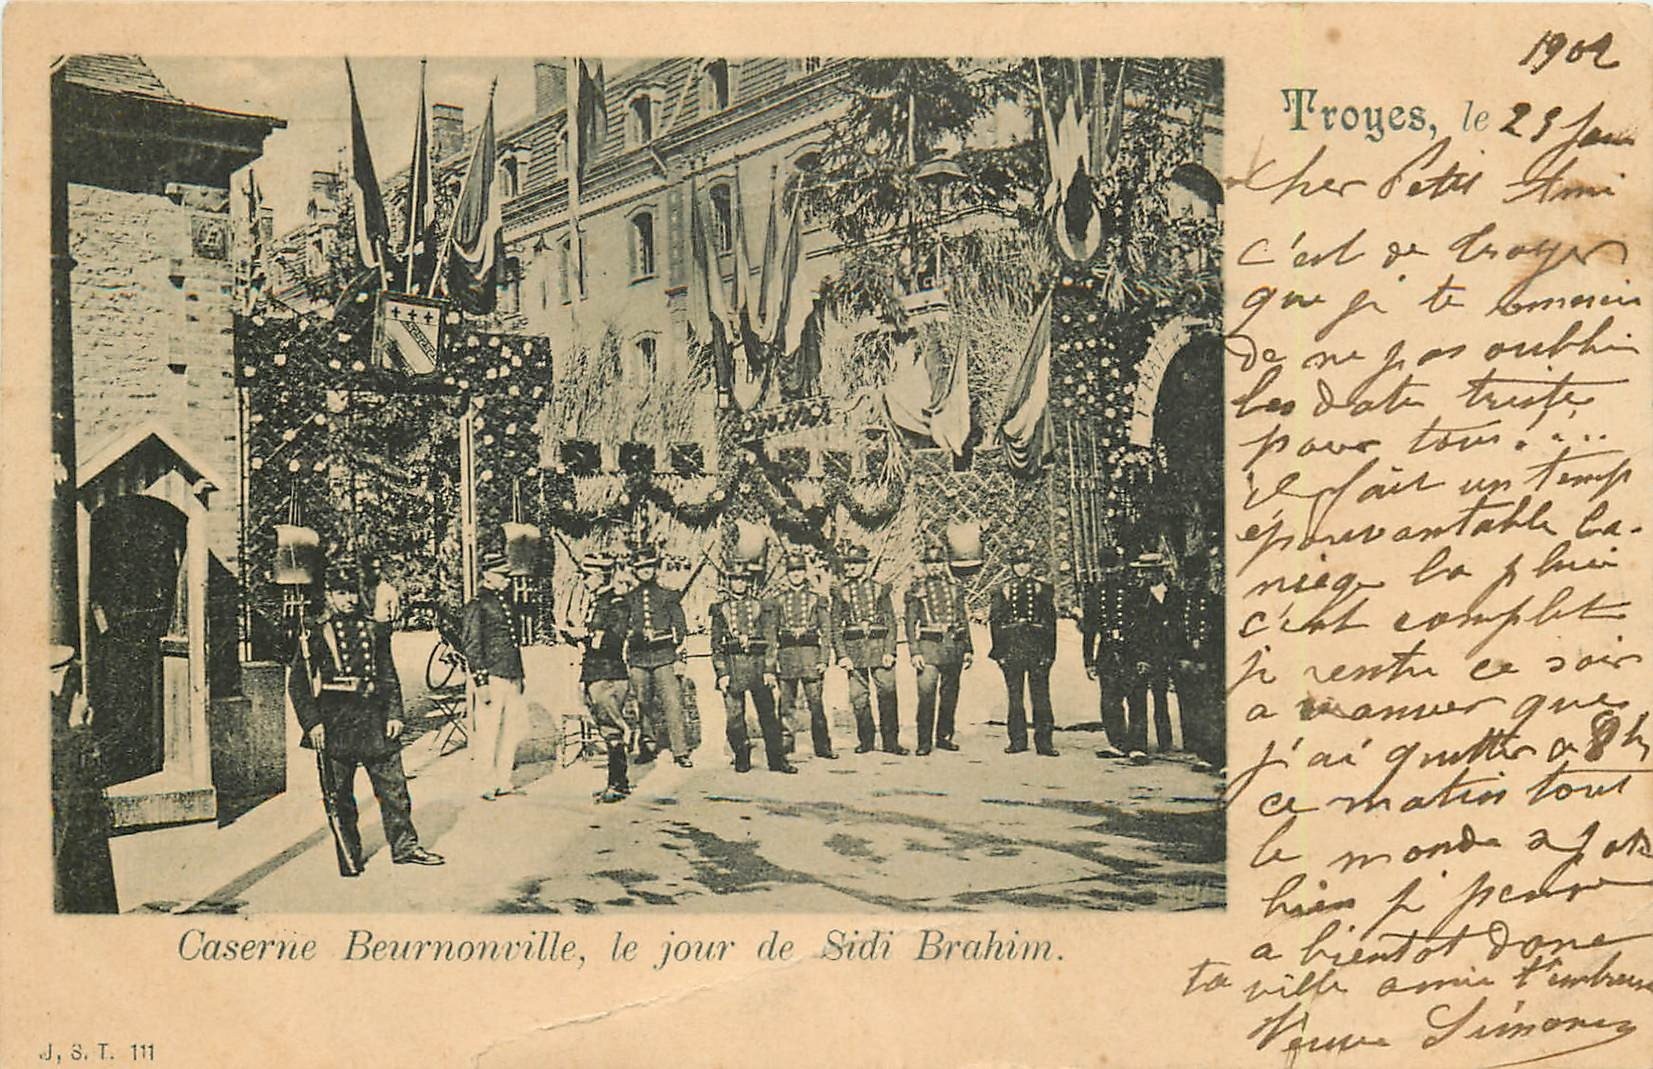 1902
Troyes, le 25 Jan
Cher Petit Ami
c'est de troyes
que je te
de ne pas oublier
les date triste
pour tous....
il fait un temp
épouvantable la
niege la pluie
c'est complet
je rentre ce soir
a que
j'ai quitter a 8h
ce matin tout
le monde
bien je pense
a bientot donc
ta vielle amie t'embrasse
Veuve Simonin
Caserne Beurnonville, le jour de Sidi Brahim.
J, S. T. 111